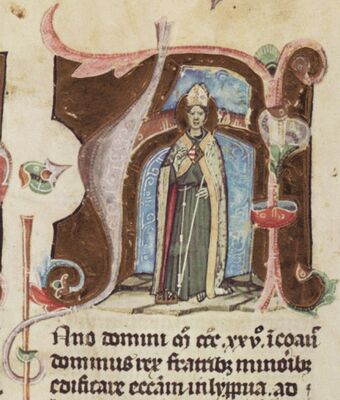 Ano domini m̊ ccc xxv̊ i coaū
dominus rex fratribȝ minoribȝ
edificare ecc̄am in lyppua. ad